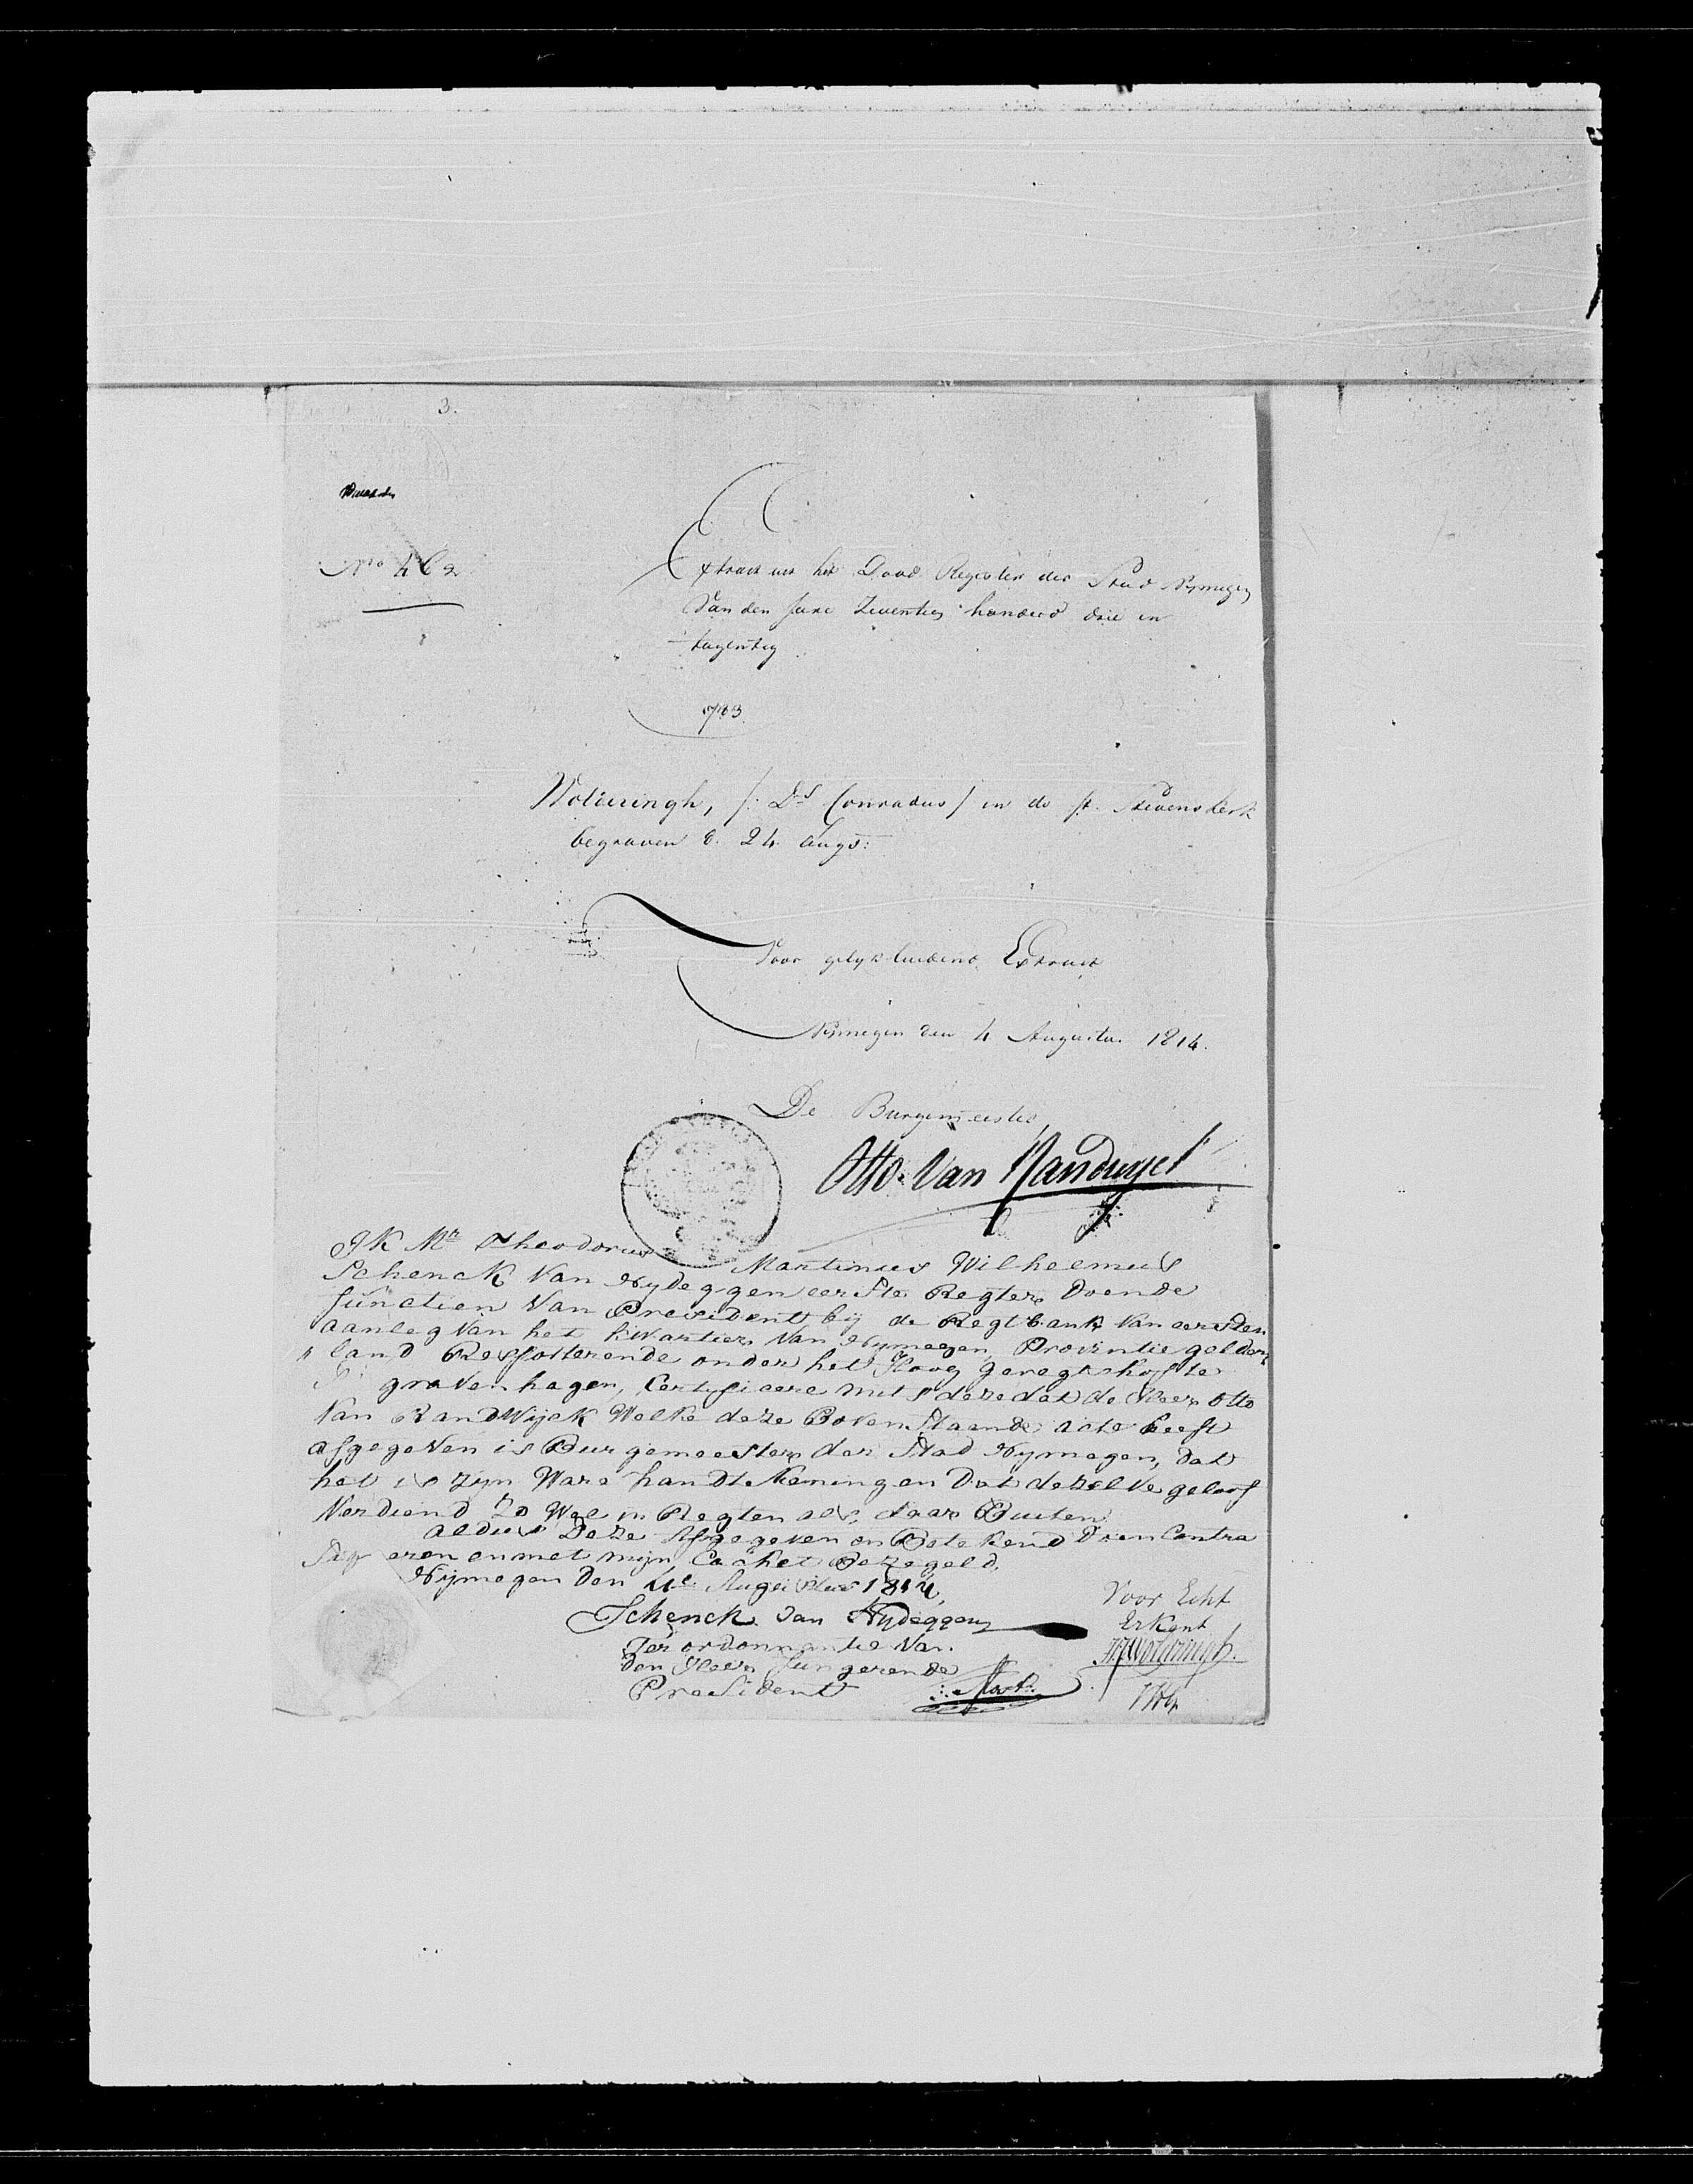 3.
No 462
Extract uit het Dood Register der Stad Nymegen
Van den Jare Zeventien honderd drie en
tagentig
1783.
Wolteringh, /: Ds Conradus / in de St. Stevens kerk
begraven d. 24 Augs:
Voor gelyk luidend Extract
Nymegen den 4 Augustus 1814.
De Burgemeester,
Otto van Randwyck
Ik Mr Theodorus Martinus Wilhelmus
Schenck Van Nydeggen eerste Regter Doende
functien Van President bij de Regtbank Van eersten
aanleg Van het kwartier Van Nymegen, Provintie gelder
" land Ressorterende onder het Hoog geregtshof te
S gravenhagen, Certificere mits deze dat de Heer Otto
Van Randwijck Welke deze Bovenstaande acte heeft
afgegeven is Burgemeester der Stad Nymegen, dat
het is zyn Ware handtekening en Dat dezelve geloof
Verdiend zo Wel in Regten als daar Buiten
aldus Deze Afgegeven en Getekend Doen Contra
Sig eren en met mijn Cachet Bezegeld.
Nijmegen Den 4e Augustus 1814,
Schenck van Nydeggen
Ter ordonnantie Van
den Heer fungerende
President
Voor Echt
Erkent